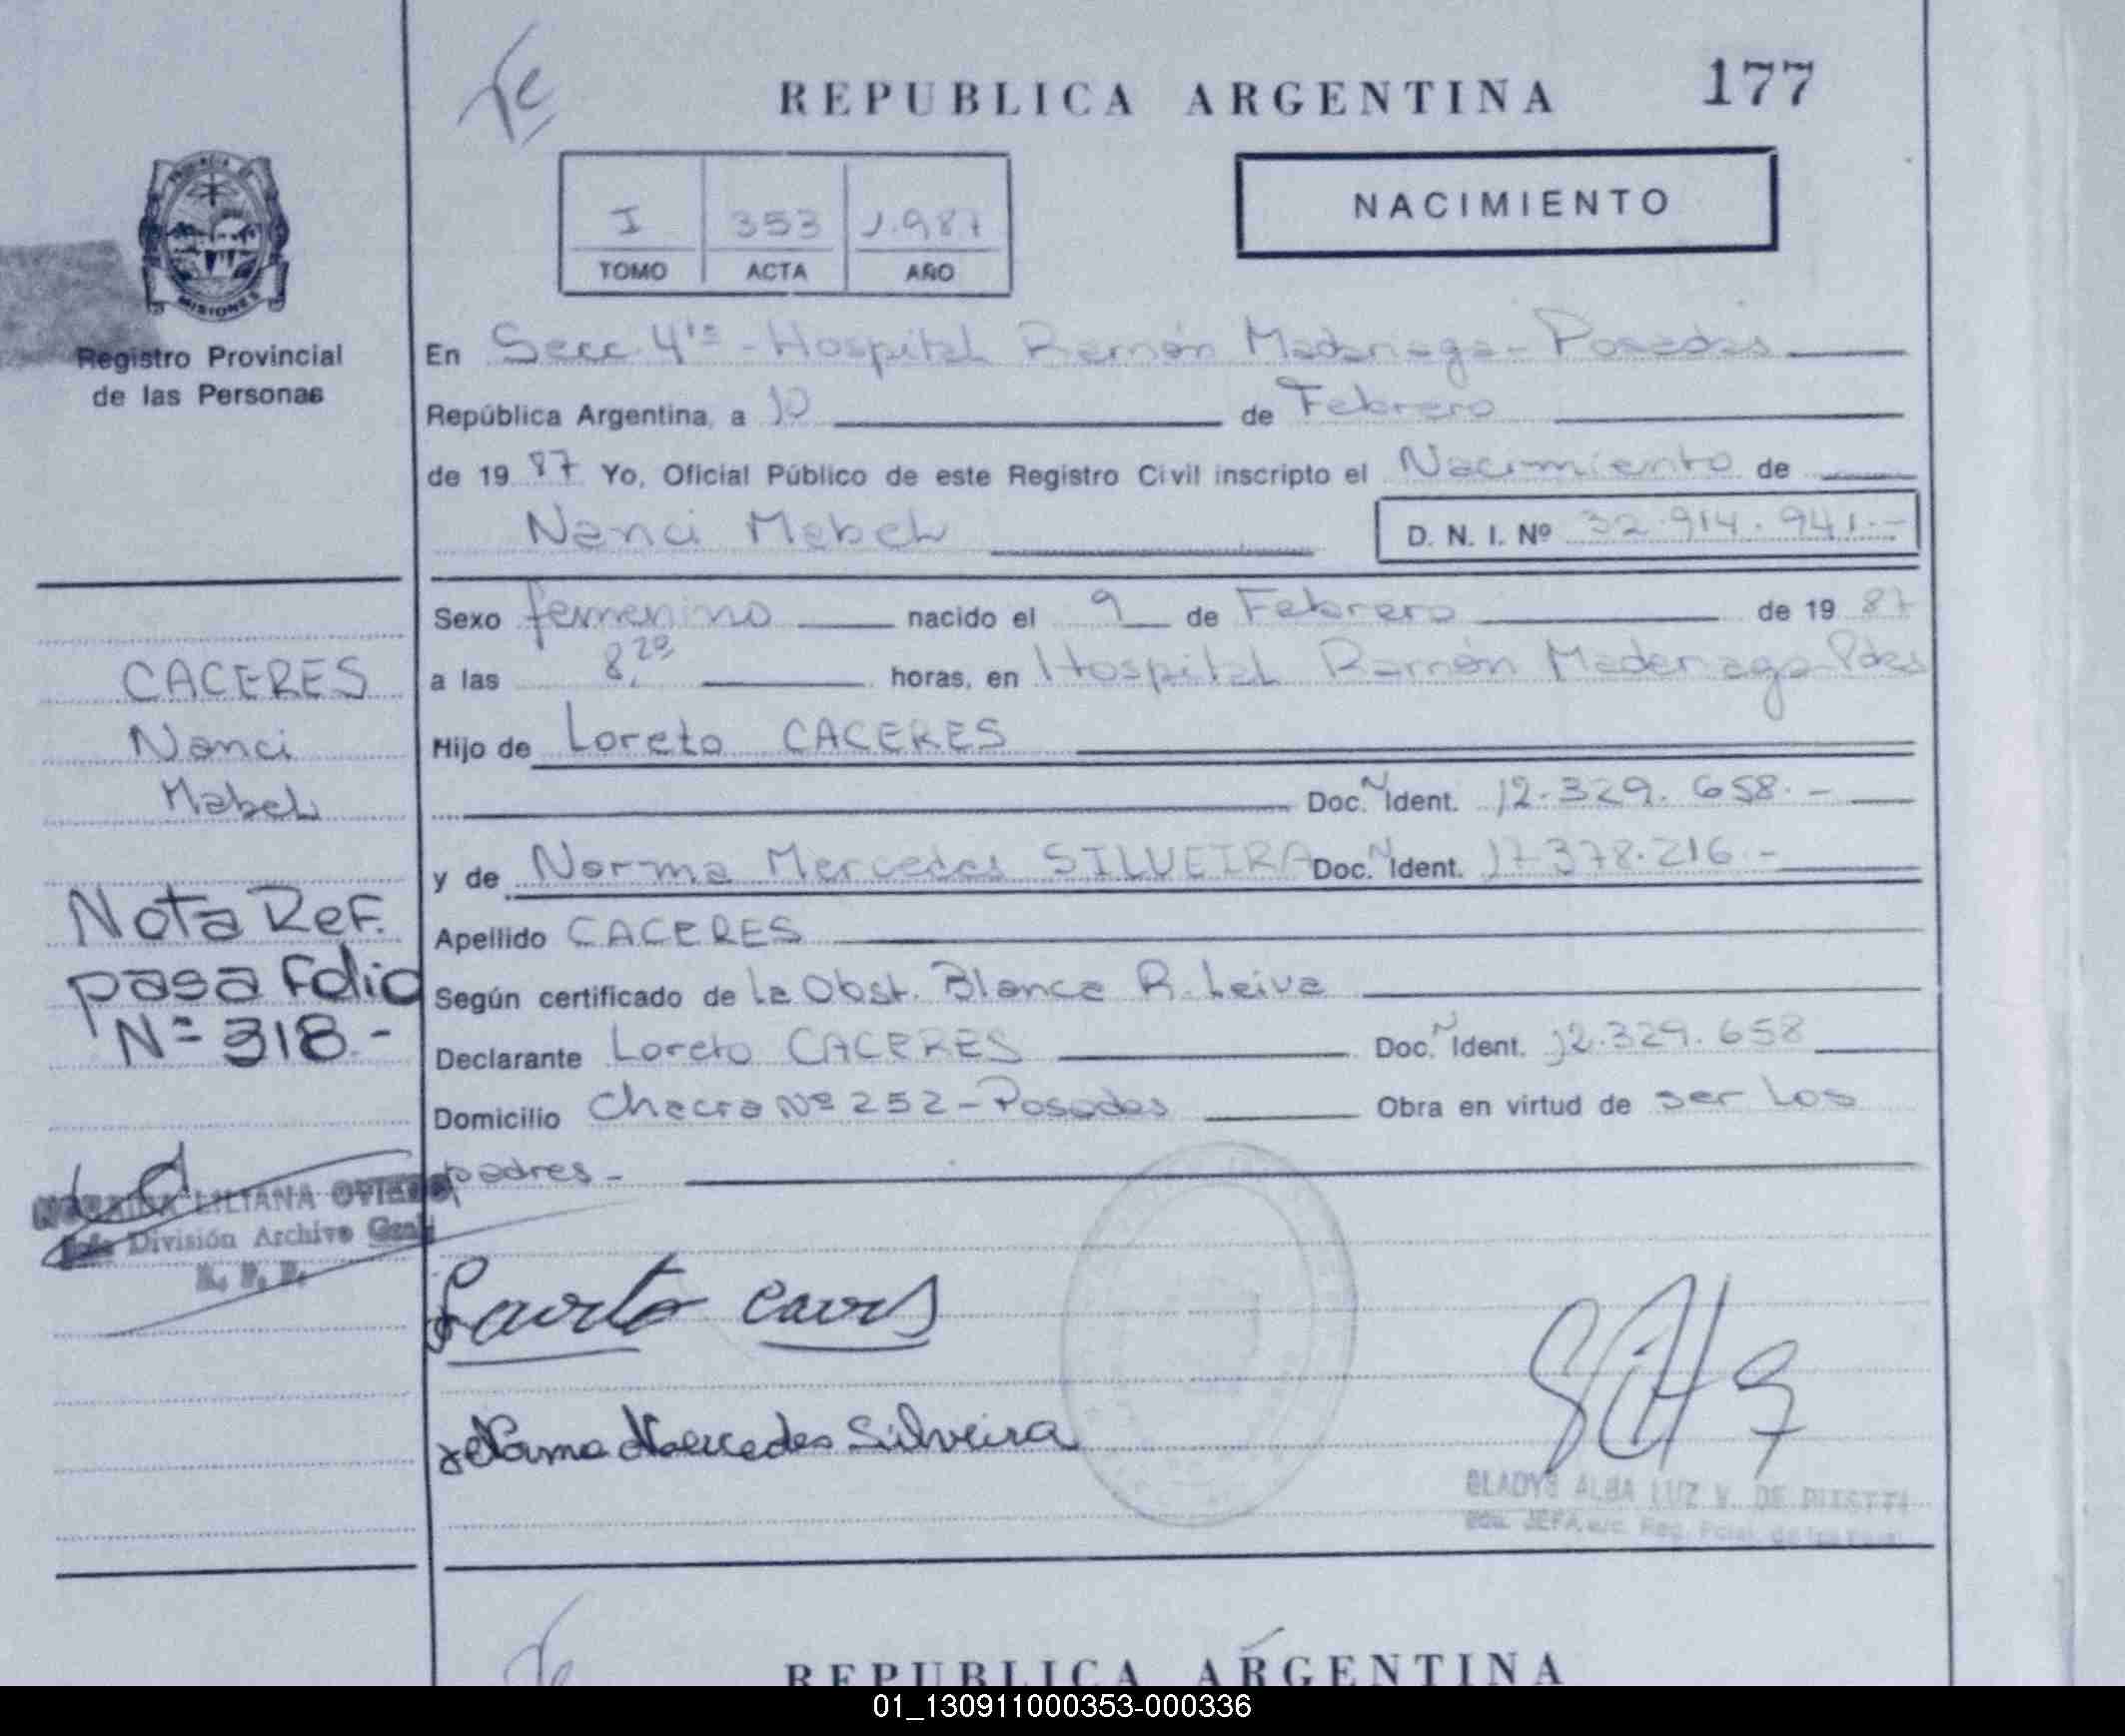 REPUBLICA ARGENTINA
177
NACIMIENTO
I 353 1.987
TOMO ACTA AÑO
PROVINCIA DE
MISIONES
Registro Provincial
de las Personas
En Secc 4ta - Hospital Ramón Madariaga - Posadas
República Argentina, a 10 de Febrero
de 19 87 Yo, Oficial Público de este Registro Civil inscripto el Nacimiento de
Nanci Mabel D. N. I. Nº 32.914.941.-
Sexo femenino nacido el 9 de Febrero de 19 87
a las 8,20 horas, en Hospital Ramón Madariaga - Pdas
Hijo de Loreto CACERES
Doc. N Ident. 12.329.658.-
y de Norma Mercedes SILVEIRA Doc. N Ident. 17.378.216.-
Apellido CACERES
Según certificado de la Obst. Blanca R. Leiva
Declarante Loreto CACERES Doc. N Ident. 12.329.658
Domicilio Chacra Nº 252 - Posadas Obra en virtud de ser los
padres -
CACERES
Nanci
Mabel
Nota Ref.
pasa folio
Nº 318.-
LILIANA
División Archivo Gral
R. P. P.
Norma Mercedes Silveira
GLADYS ALBA LUZ V. DE
JEFA
REPUBLICA ARGENTINA
01_130911000353-000336